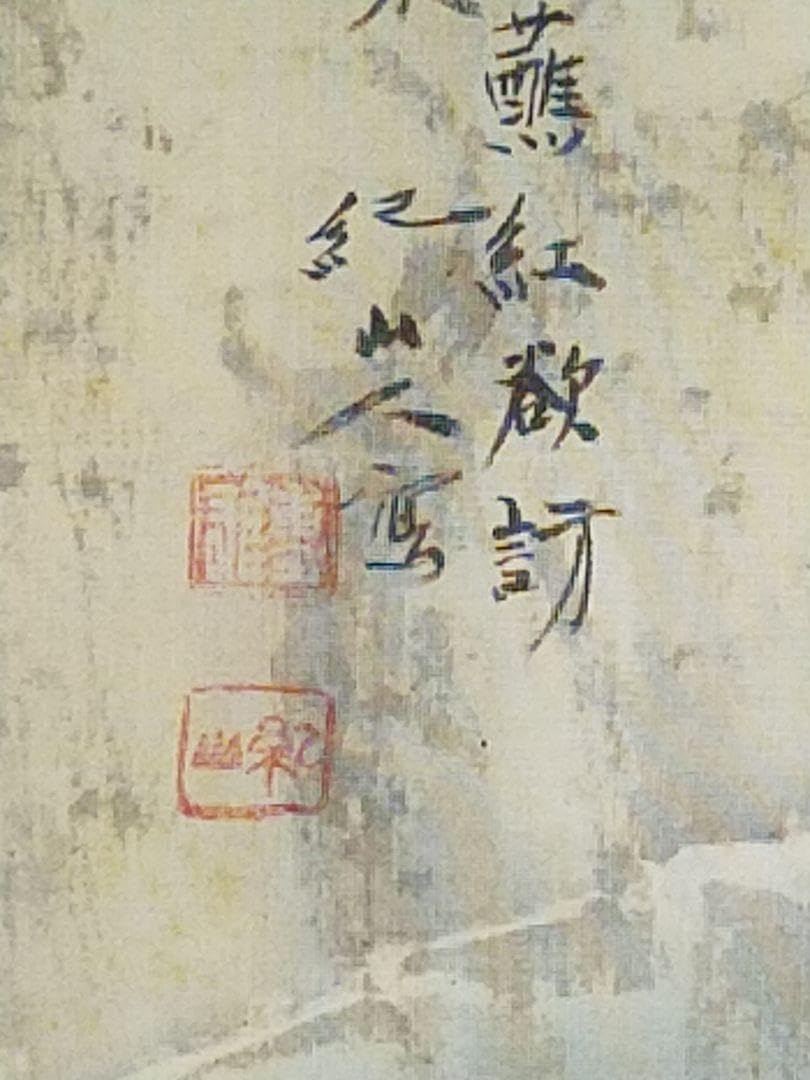 蘸紅欲訪
紀山人寫
紀山